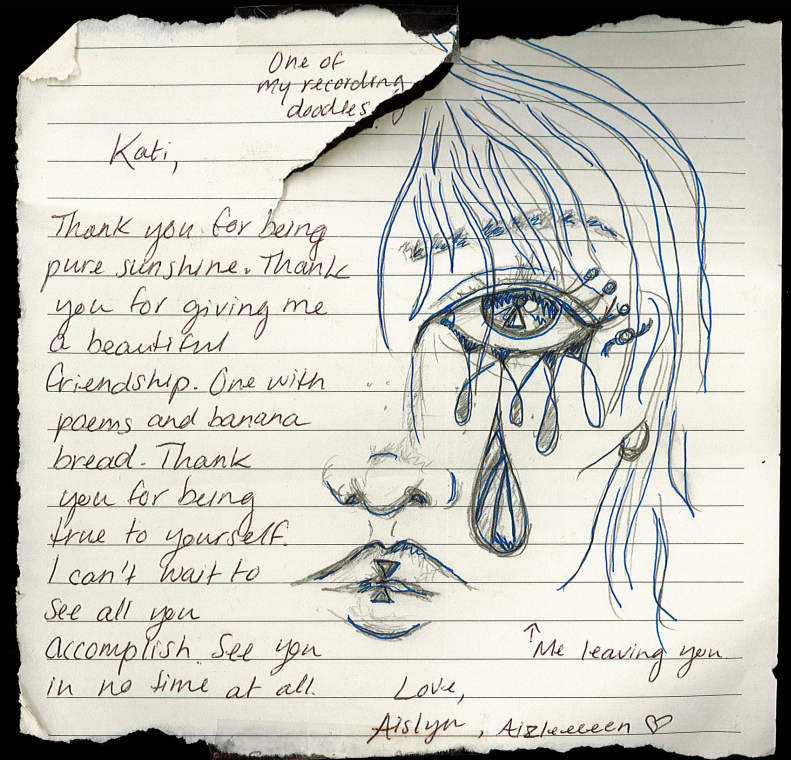 One of
my recording
doodles.
Kati,
Thank you for being
pure sunshine. Thank
you for giving me
a beautiful
friendship. One with
poems and banana
bread. Thank
you for being
true to yourself.
I can't wait to
see all you
accomplish. See you
in no time at all.
↑Me leaving you.
Love,
Aislyn, Aizleeeeen ♡